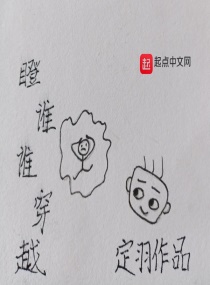 起 起点中文网
瞪谁谁穿越
定羽作品